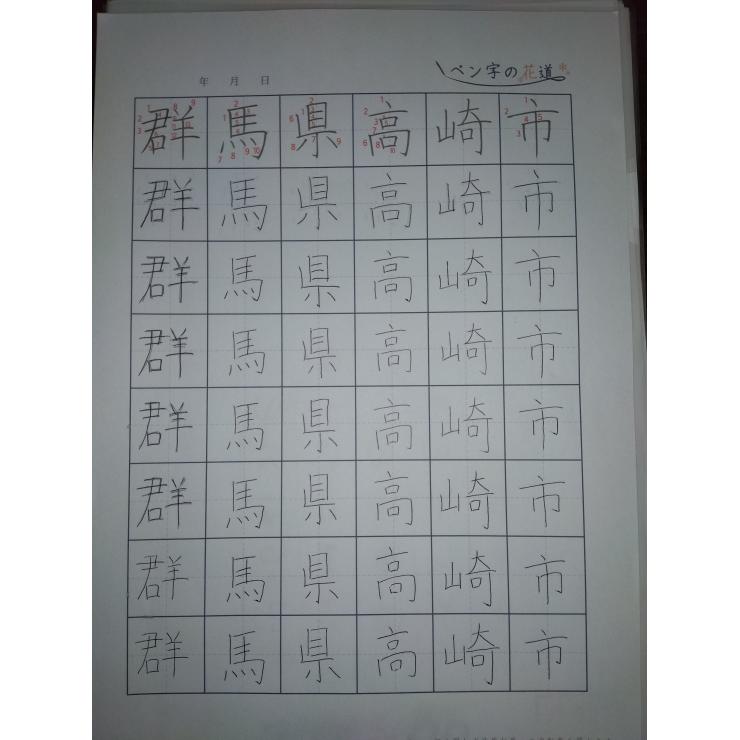 ペン字の花道
年 月 日
群馬県高崎市
群馬県高崎市
群馬県高崎市
群馬県高崎市
群馬県高崎市
群馬県高崎市
群馬県高崎市
群馬県高崎市